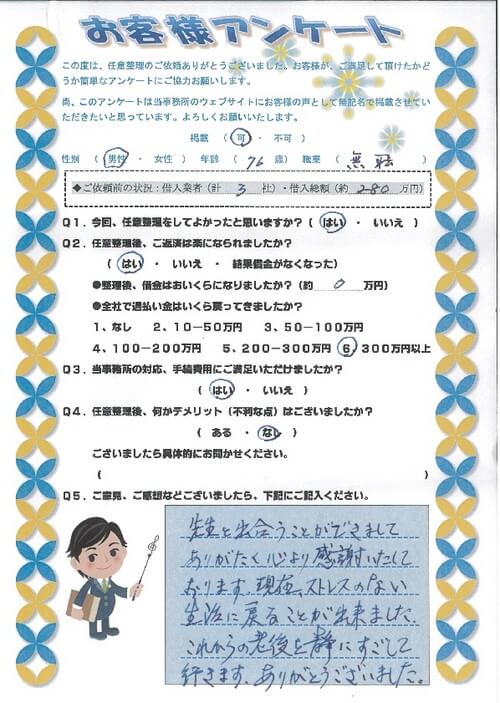 お客様アンケート
この度は、任意整理のご依頼ありがとうございました。お客様が、ご満足して頂けたかど
うか簡単なアンケートにご協力お願いします。
尚、このアンケートは当事務所のウェブサイトにお客様の声として無記名で掲載させてい
ただきたいと思っています。よろしくお願いいたします。
掲載 ( 可 ・ 不可 )
性別 ( 男性 ・ 女性 ) 年齢 ( 76 歳) 職業 ( 無職 )
◆ご依頼前の状況:借入業者(計 3 社)・借入総額(約 280 万円)
Q1.今回、任意整理をしてよかったと思いますか?( はい ・ いいえ )
Q2.任意整理後、ご返済は楽になられましたか?
( はい ・ いいえ ・ 結果借金がなくなった)
●整理後、借金はおいくらになりましたか?(約 0 万円)
●全社で過払い金はいくら戻ってきましたか?
1、なし 2、10-50万円 3、50-100万円
4、100-200万円 5、200-300万円 6、300万円以上
Q3.当事務所の対応、手続費用にご満足いただけましたか?
( はい ・ いいえ )
Q4.任意整理後、何かデメリット(不利な点)はございましたか?
( ある ・ なし )
ございましたら具体的にお聞かせください。
( )
Q5.ご意見、ご感想などございましたら、下記にご記入ください。
先生と出会うことができまして
ありがたく心より感謝いたして
おります。現在、ストレスのない
生活に戻ることが出来ました。
これからの老後を静にすごして
行きます。ありがとうございました。